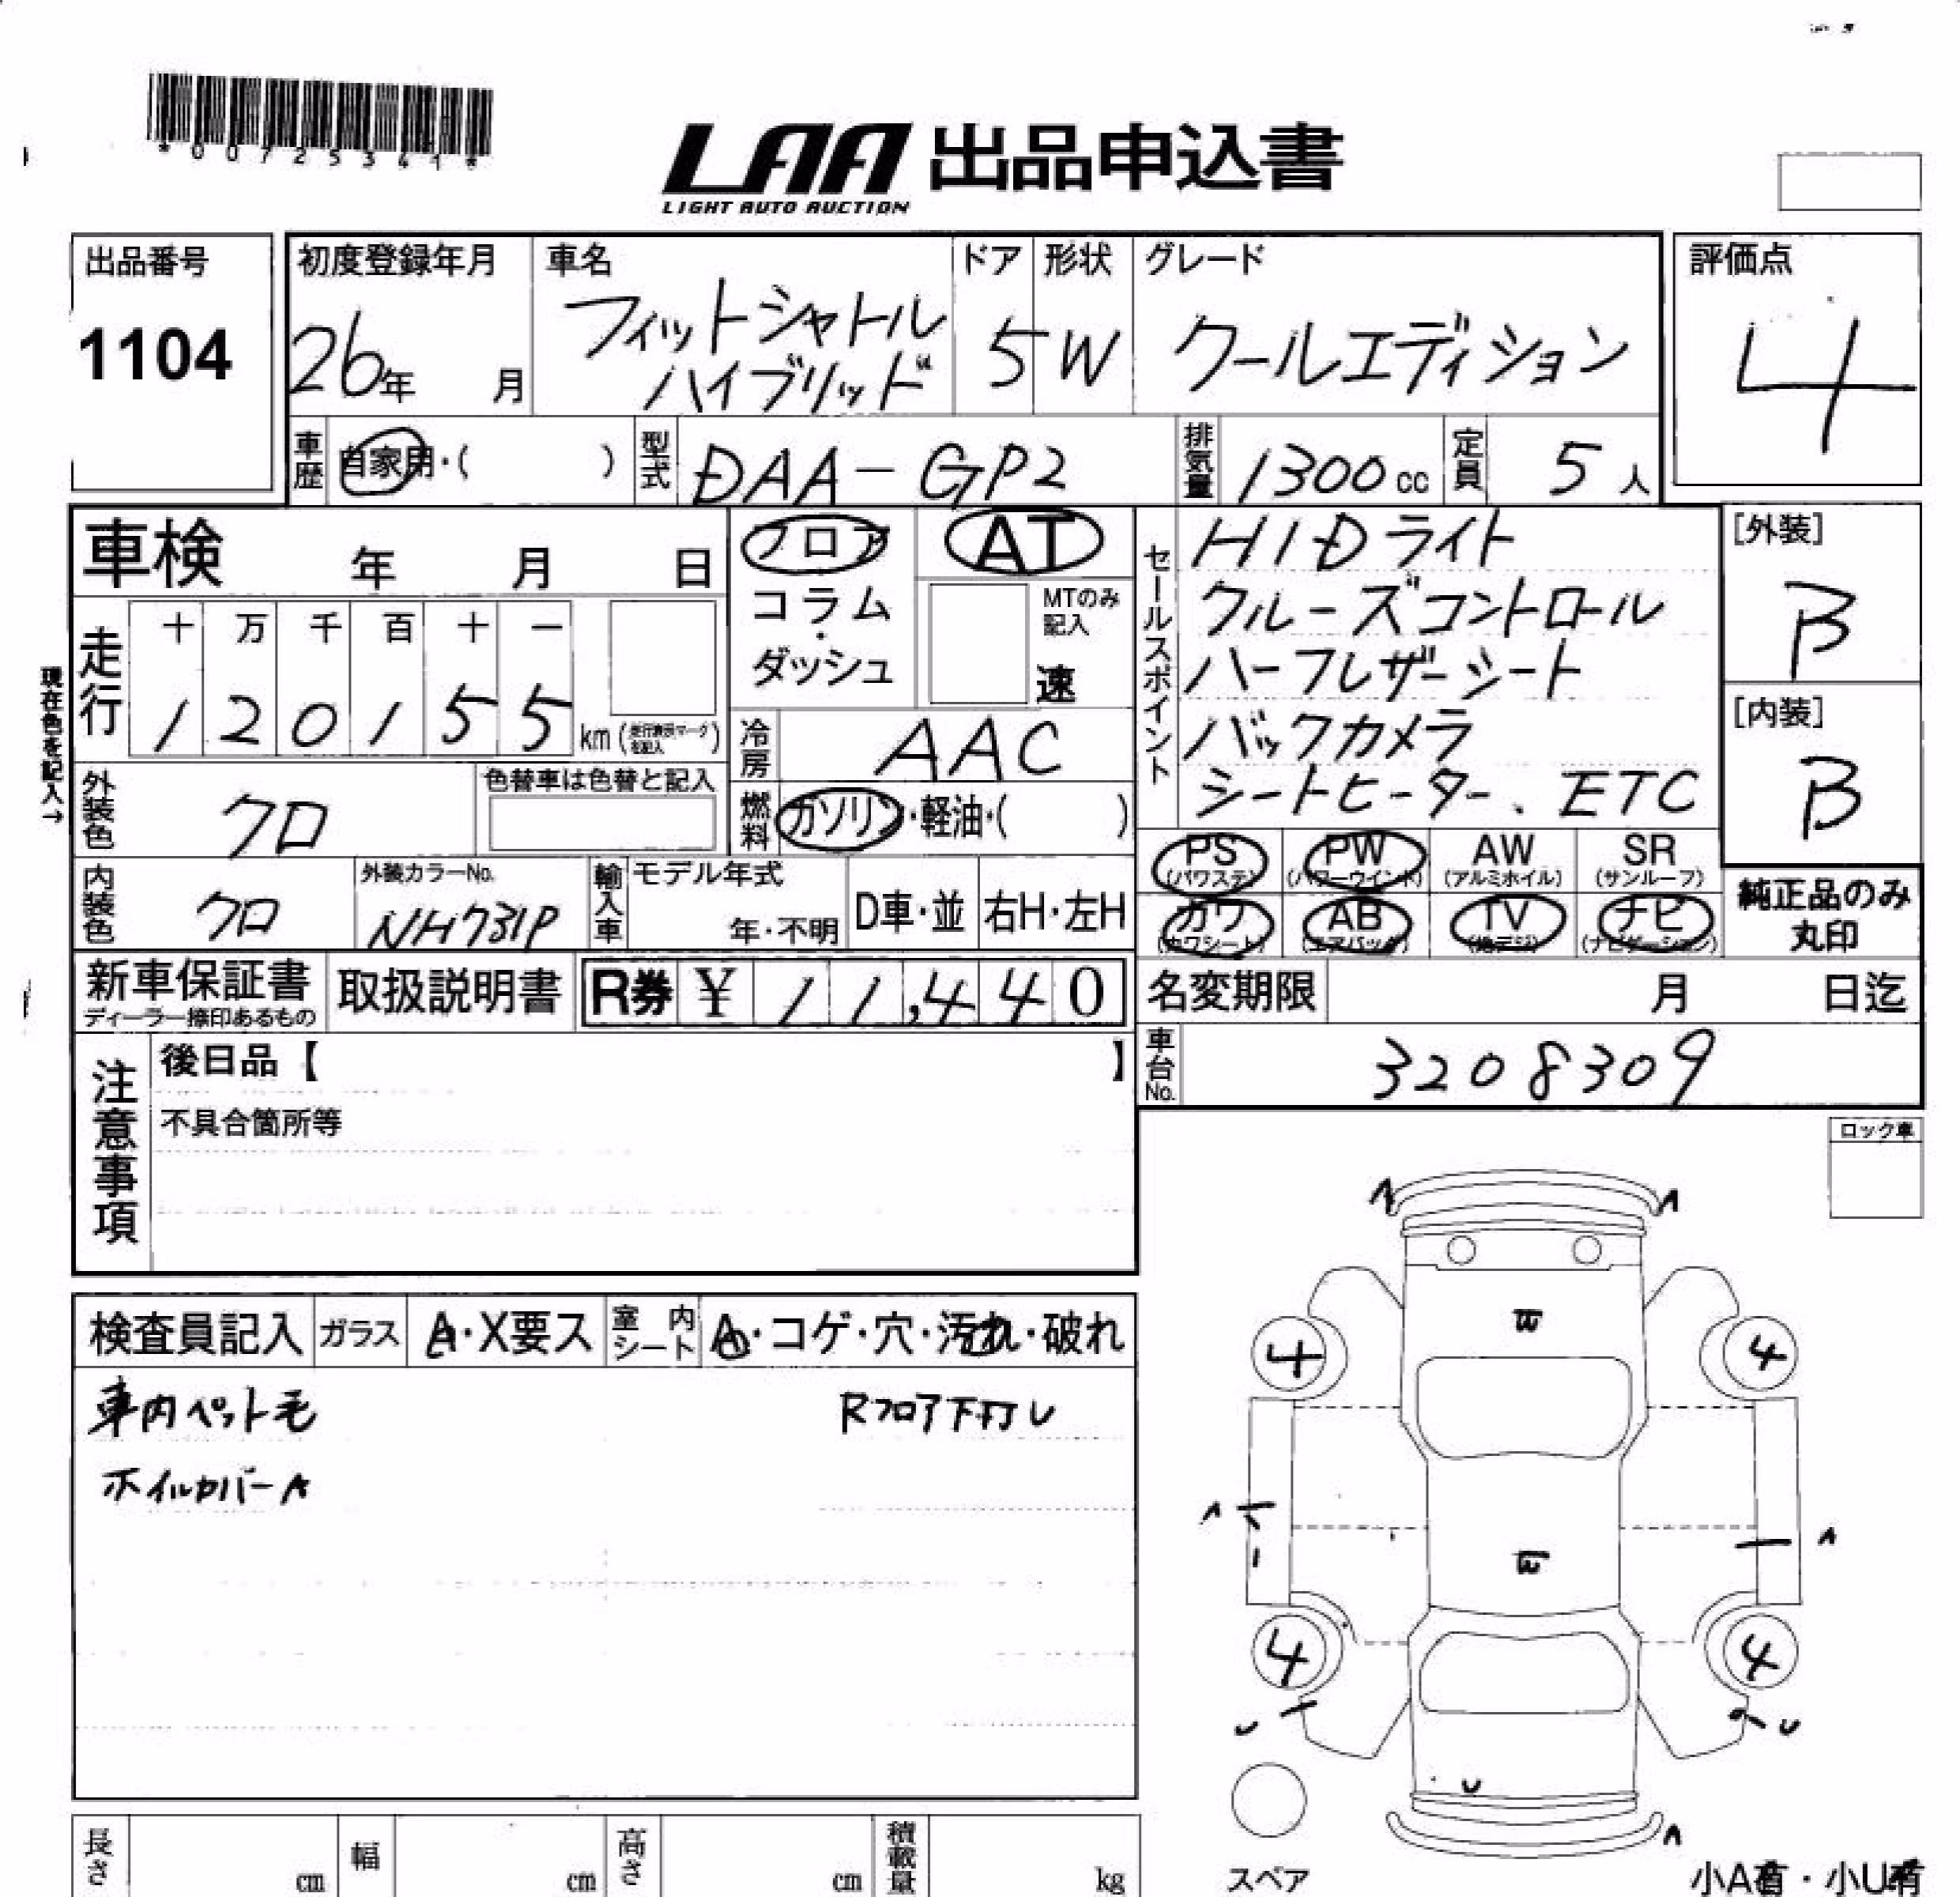 *00725341*
LAA 出品申込書
LIGHT AUTO AUCTION
出品番号 1104
初度登録年月 26年 月
車名 フィットシャトル ハイブリッド
ドア 5
形状 W
グレード クールエディション
評価点 4
車歴 自家用・( )
型式 DAA-GP2
排気量 1300cc
定員 5人
車検 年 月 日
フロア・コラム・ダッシュ
AT
MTのみ記入 速
セールスポイント
HIDライト
クルーズコントロール
ハーフレザーシート
バックカメラ
シートヒーター、ETC
[外装] B
[内装] B
現在色を記入→
走行 十 万 千 百 十 一
1 2 0 1 5 5 km
冷房 AAC
外装色 クロ
色替車は色替と記入
燃料 ガソリン・軽油・( )
内装色 クロ
外装カラーNo. NH731P
輸入車 モデル年式 年・不明 D車・並 右H・左H
PS (パワステ) PW (パワーウインド) AW (アルミホイル) SR (サンルーフ)
カワ (カワシート) AB (エアバック) TV (地デジ) ナビ (ナビゲーション)
純正品のみ丸印
新車保証書 ディーラー捺印あるもの
取扱説明書
R券 ¥ 11,440
名変期限 月 日迄
車台No. 3208309
注意事項
後日品【 】
不具合箇所等
ロック車
検査員記入 ガラス A・X要ス 室内シート A・コゲ・穴・汚れ・破れ
車内ペット毛 Rフロア下打U
ホイルカバーA
A A
W
4 4
A A
W
4 4
U U
U
A
スペア
小A有・小U有
長さ cm 幅 cm 高さ cm 積載量 kg